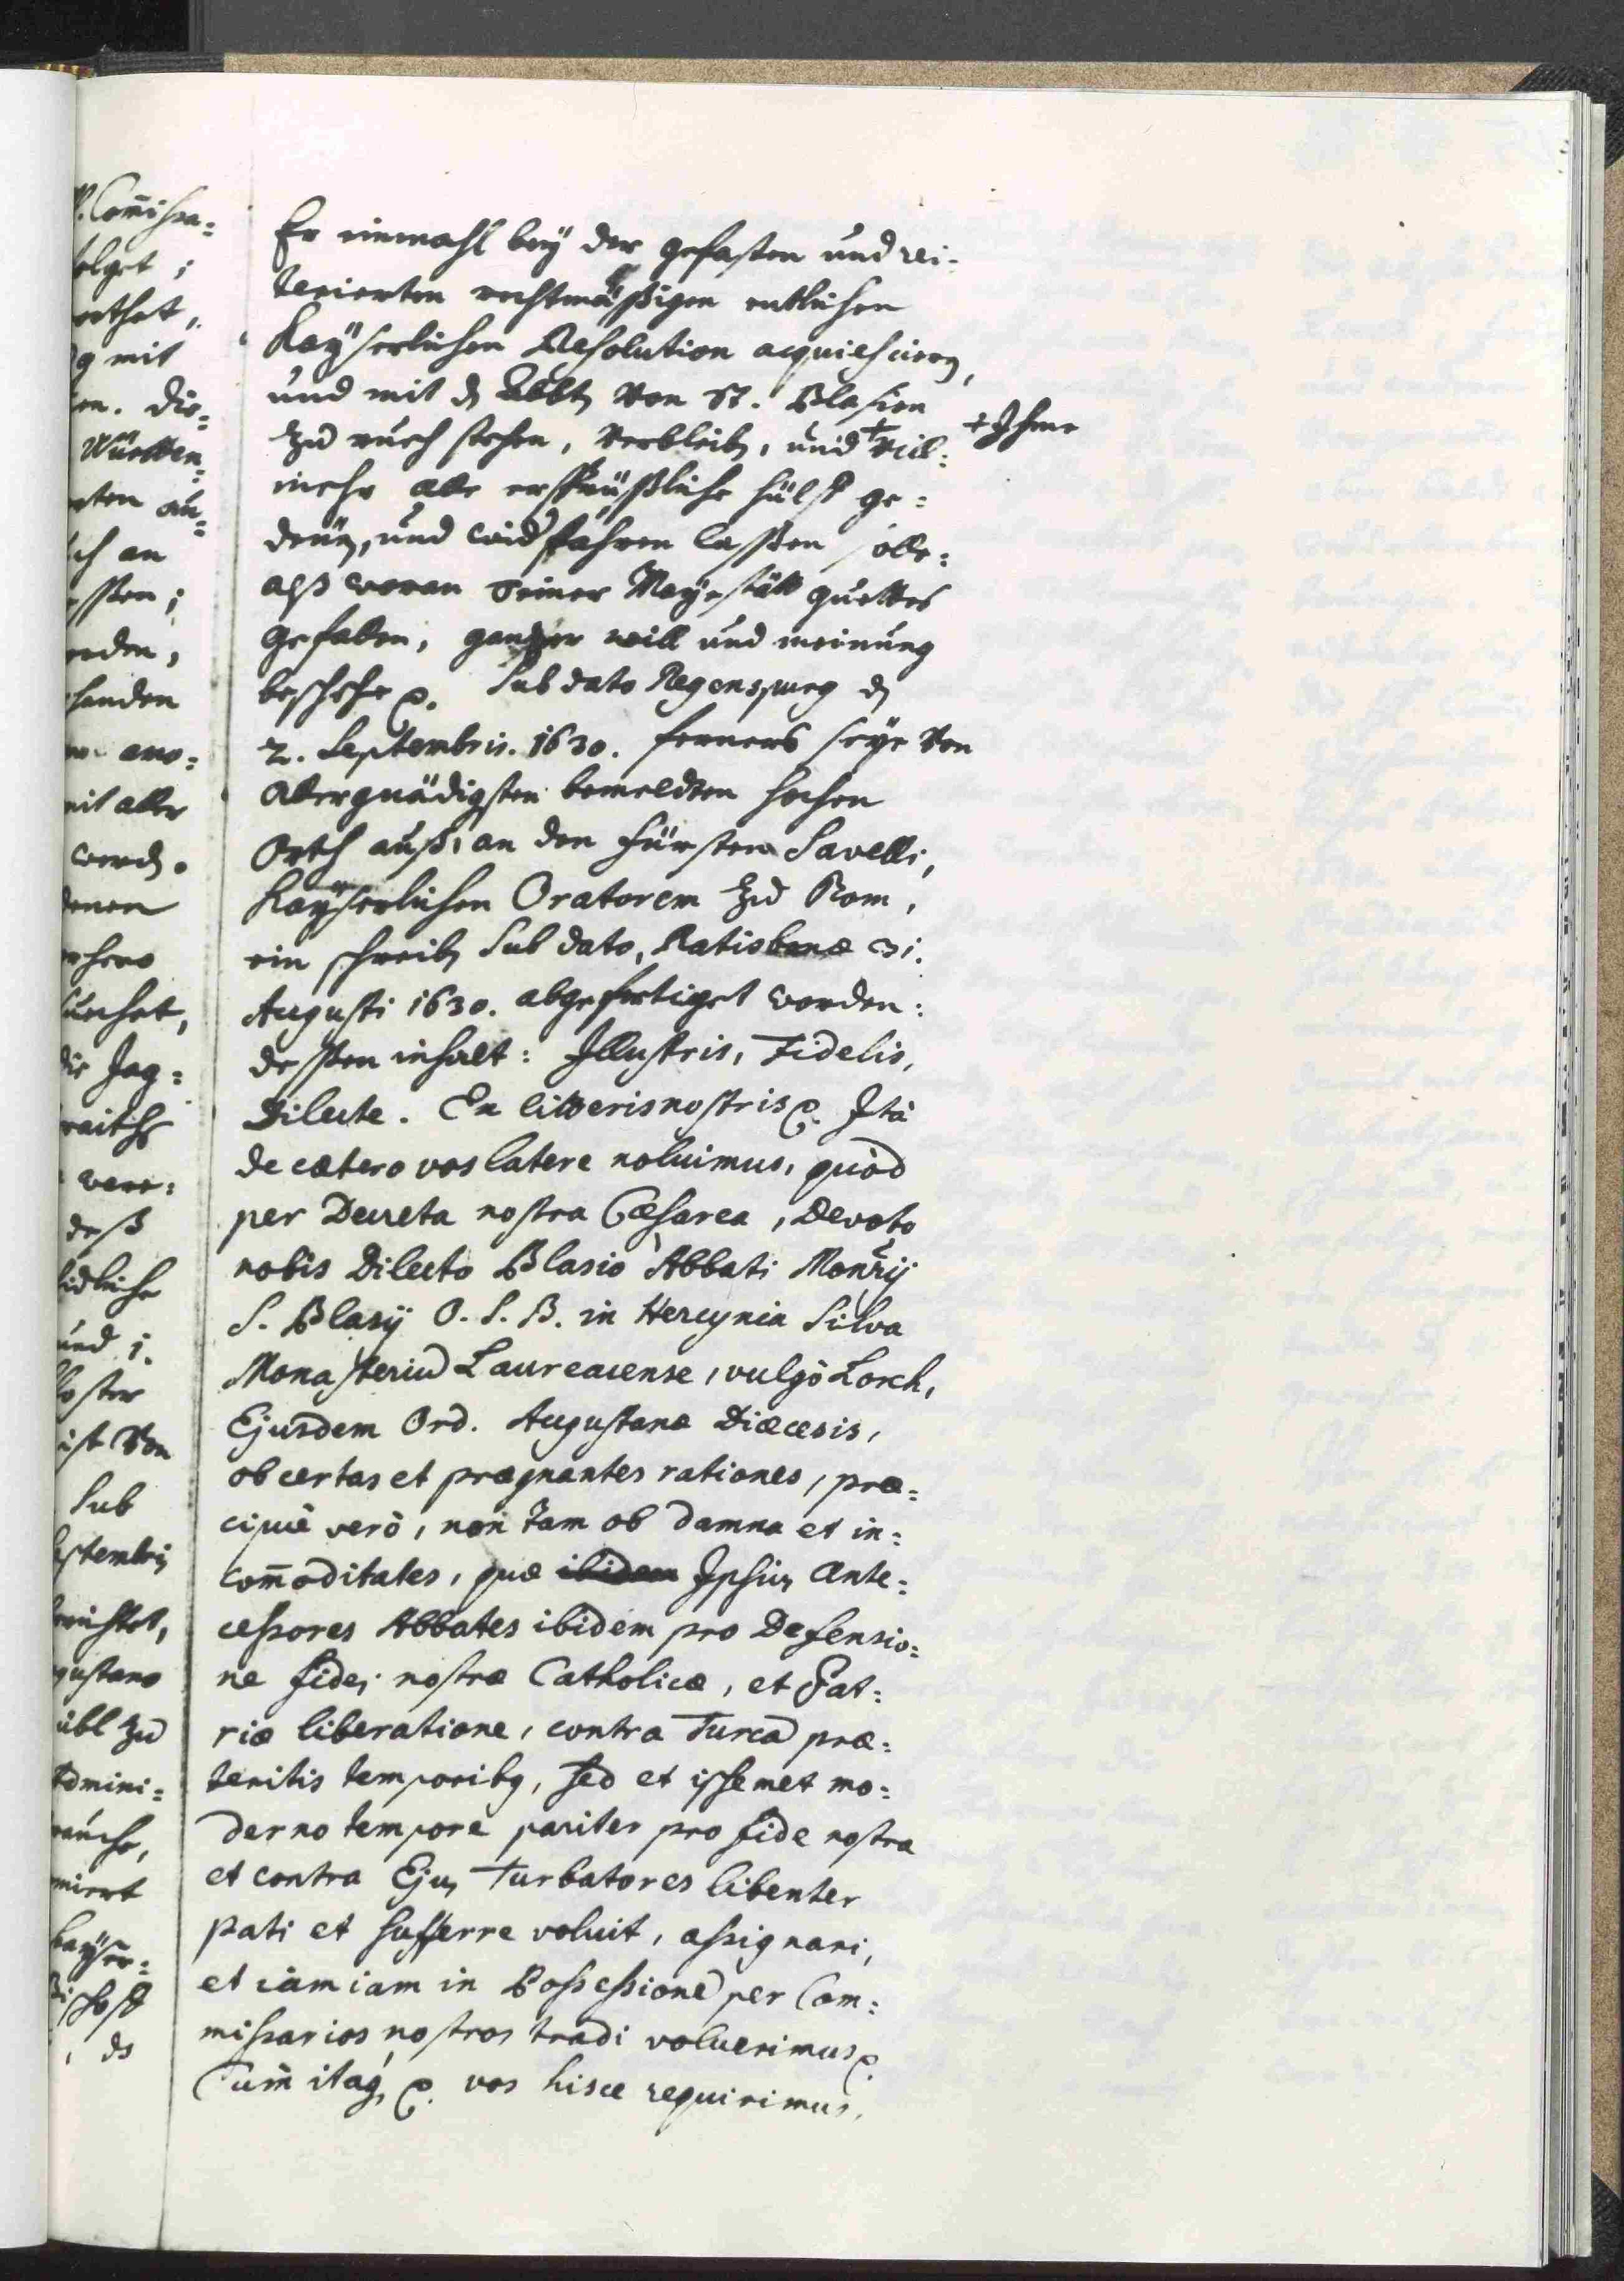 P. Com̄issa=
olget ;
g mit
en. die=
Württen=
ch an
handen
mit aller
werdẽ.
denen
die Jag=
deß
und j.
ist Von
Sub
eptembris
gustano
übl zu
Admini=
Kaÿser=
Er einmahl beÿ der gefasten und rei=
terierten rechtmäßigen entlichen
Kaÿserlichen Resolution acquiescierẽ,
und mit dẽ Abbtẽ Von St. Blasien
zu ruch stehen, Verbleibẽ, und + Vill=
+ Ihme
mehr alle ersprüßliche hülff ge=
denẽ, und widfahren laßen solle=
alß woran Seiner Mayestätt guettes
gefallen, gantzer will und meinung
beschehe ꝛc. Sub dato Regenspurg dẽ
2. Septembris. 1630. ferners seÿe Von
Allergnädigsten bemeldten hochen
Orth auß, an den fürsten Savelli,
Kaÿserlichen Oratorem zu Rom,
ein schreibẽ Sub dato, Ratisbonæ 31.
Augusti 1630. abgefertiget worden:
deßen inhalt: Illustris, Fidelis,
Dilecte. Ex litteris nostris ꝛc. Ità
de cætero vos latere noluimus, quòd
per Decreta nostra Cæsarea, Devoto
nobis Dilecto Blasio Abbati Monrij
S. Blasÿ O. S. B. in Hercynia Silva
Monasteriũ Laureacense, vulgò Lorch,
Ejusdem Ord. Augustanæ Diœcesis,
ob certas et prægnantes rationes, præ=
cipuè verò, non tam ob damna et in=
com̄oditates, quæ Ipsius Ante=
cessores Abbates ibidem pro Defensio=
ne fidei nostræ Catholicæ, et Pat=
riæ liberatione, contra Turcã præ=
teritis temporibꝫ, sed et ipsemet mo=
derno tempore pariter pro fide nostra
et contra Ejus Turbatores libenter
pati et sufferre voluit, assignari,
et iam iam in Possessionẽ per Com=
missarios nostros tradi voluerimus ꝛc.
Cum̄ itaqꝫ ꝛc. vos hisce requirimus,